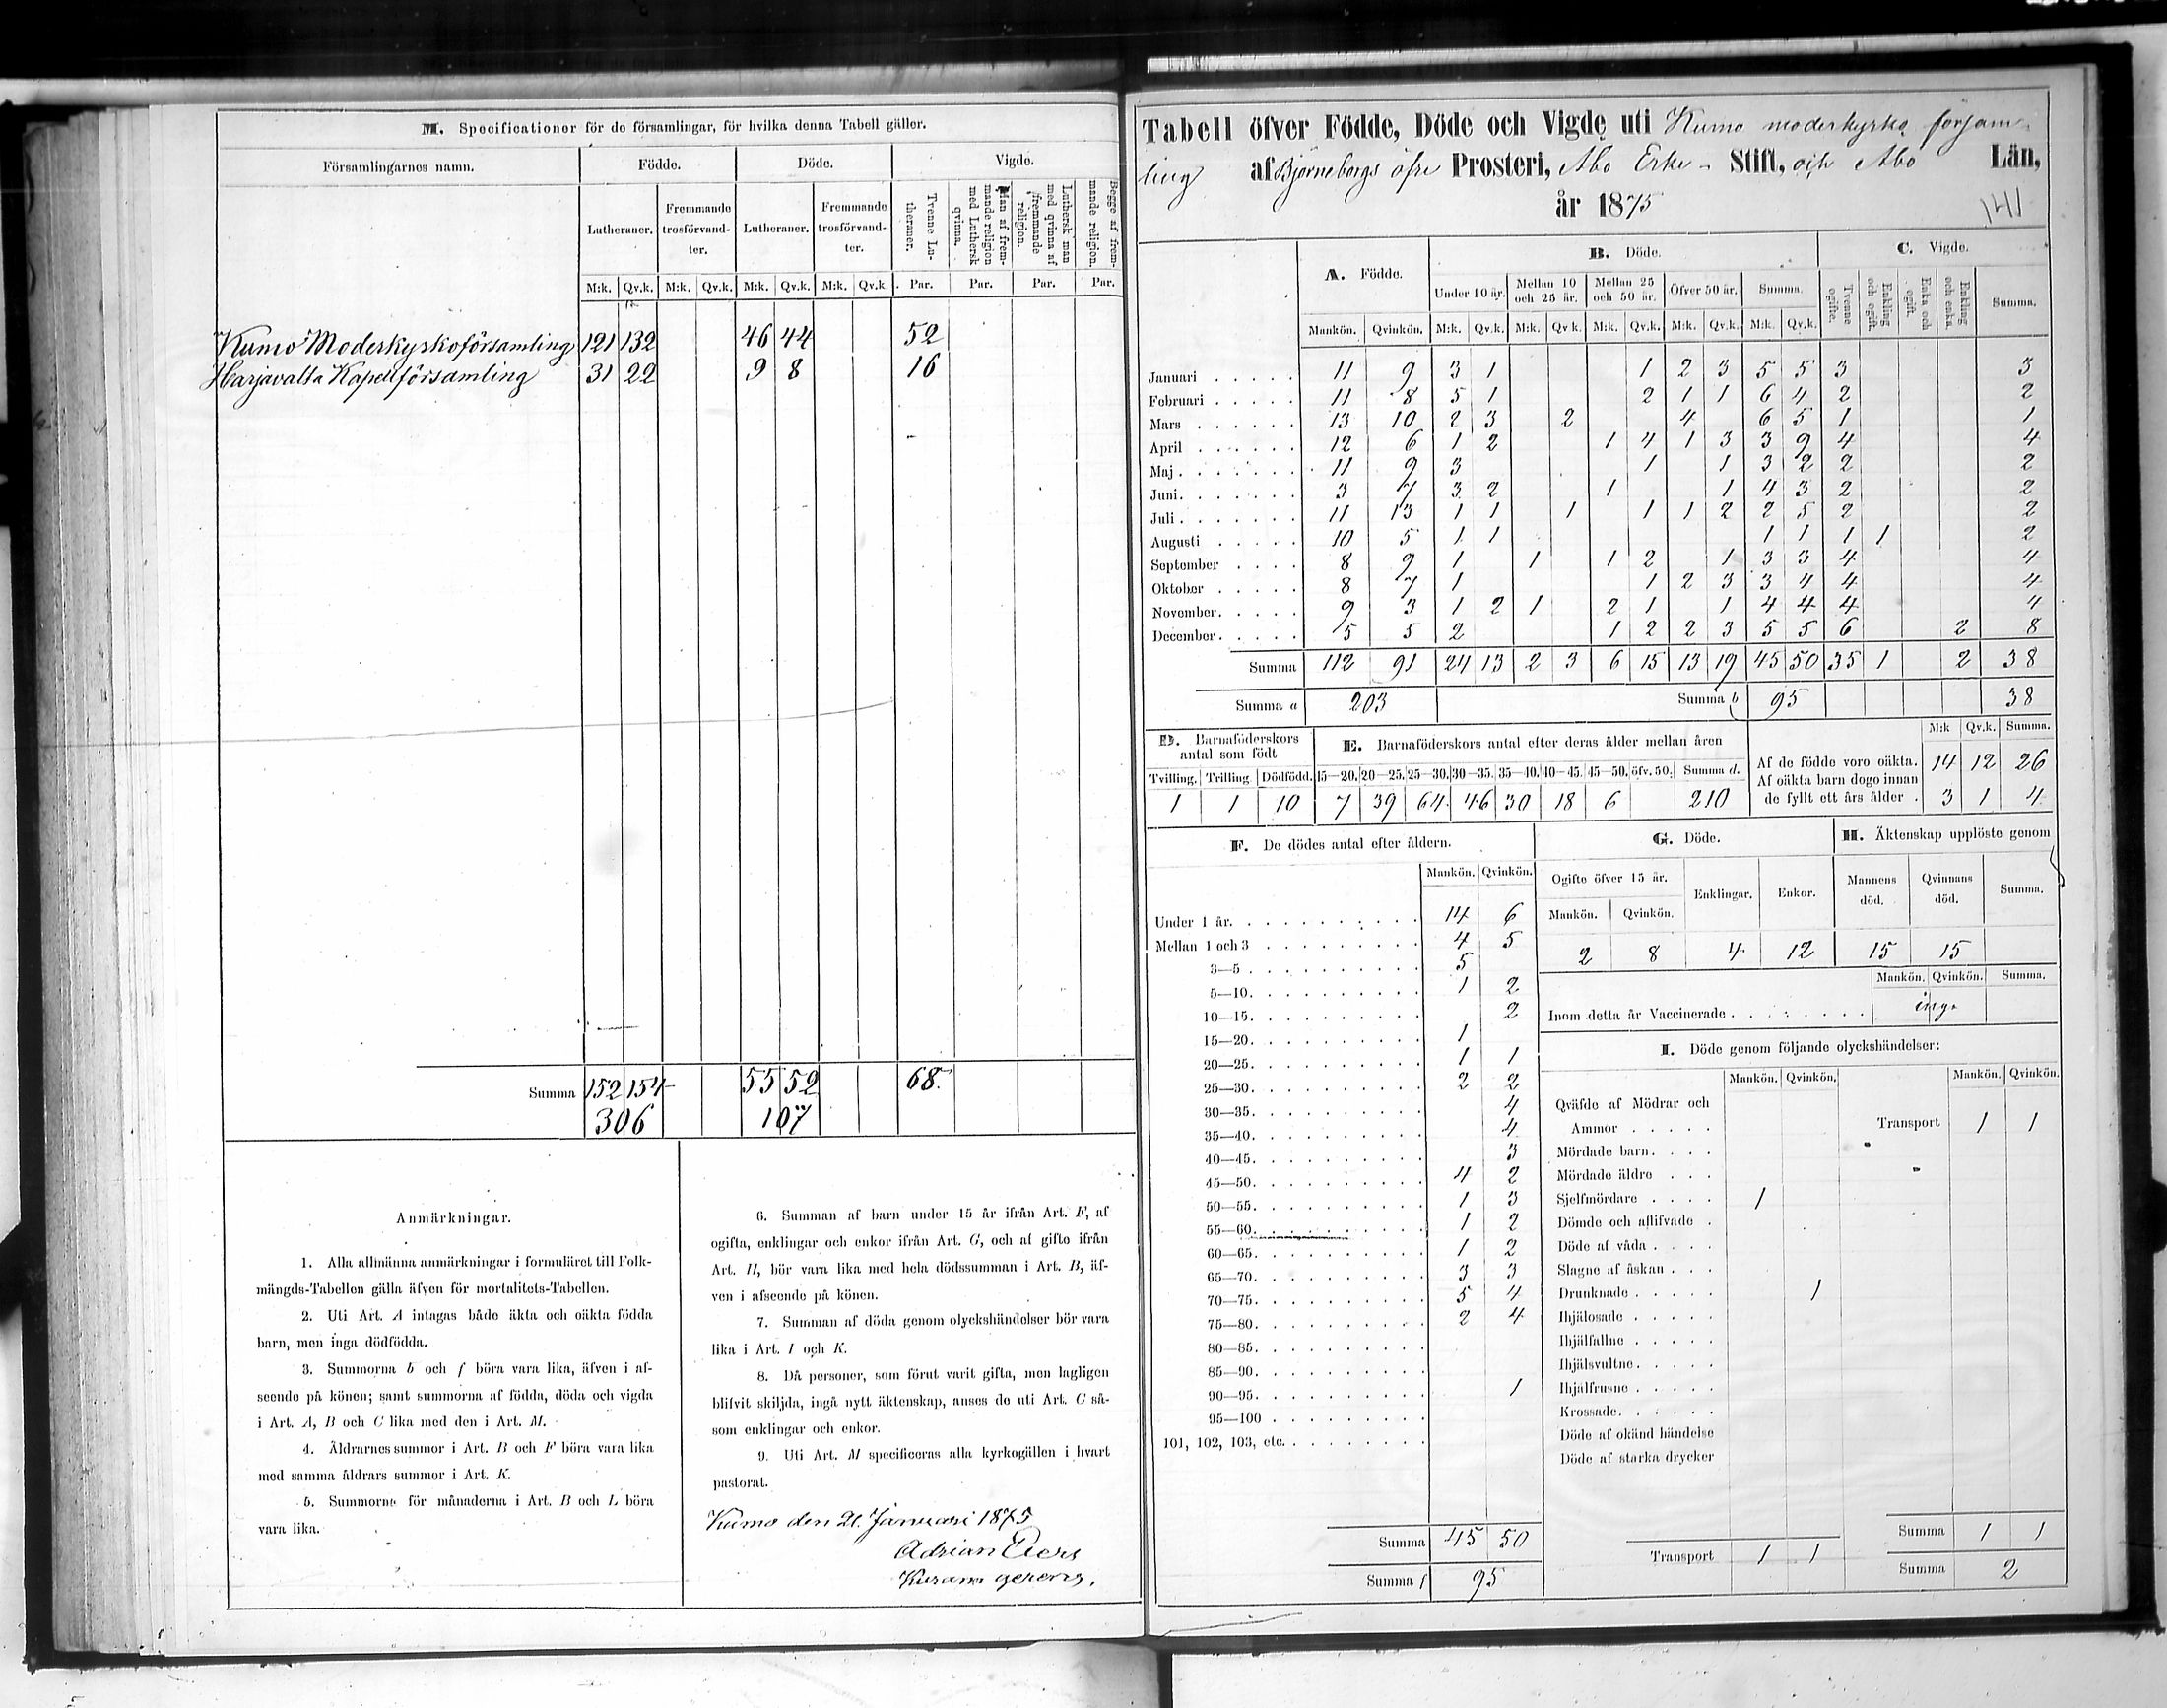 M. Specificationer för de församlingar, för hvilka denna Tabell gäller.
Församlingarnes namn. Födde. Döde. Vigde.
Lutheraner. Fremmande trosförvandter. Lutheraner. Fremmande trosförvandter. Tvenne Lutheraner. Man af fremmande religion med Luthersk qvinna. Luthersk man med qvinna af fremmande religion. Begge af fremmande religion.
M:k. Qv.k. M:k. Qv.k. M:k. Qv.k. M:k. Qv.k. Par. Par. Par. Par.
Kumo Moderkyrkoförsamling 121 132 46 44 52
Harjavalta Kapellförsamling 31 22 9 8 16
Summa 152 154 55 52 68.
306 107
Anmärkningar.
1. Alla allmänna anmärkningar i formuläret till Folk-
mängds-Tabellen gälla äfven för mortalitets-Tabellen.
2. Uti Art. A intagas både äkta och oäkta födda
barn, men inga dödfödda.
3. Summorna b och f böra vara lika, äfven i af-
seende på könen; samt summorna af födda, döda och vigda
i Art. A, B och C lika med den i Art. M.
4. Åldrarnes summor i Art. B och F böra vara lika
med samma åldrars summor i Art. K.
5. Summorne för månaderna i Art. B och L böra
vara lika.
6. Summan af barn under 15 år ifrån Art. F, af
ogifta, enklingar och enkor ifrån Art. G, och af gifte ifrån
Art. H, bör vara lika med hela dödssumman i Art. B, äf-
ven i afseende på könen.
7. Summan af döda genom olyckshändelser bör vara
lika i Art. I och K.
8. Då personer, som förut varit gifta, men lagligen
blifvit skiljda, ingå nytt äktenskap, anses de uti Art. C så-
som enklingar och enkor.
9. Uti Art. M specificeras alla kyrkogällen i hvart
pastorat.
Kumo den 21. Januari 1875
Adrian
Tabell öfver Födde, Döde och Vigde uti Kumo moderkyrko församling
af Björneborgs öfre Prosteri, Åbo Erke- Stift, och Åbo Län,
år 1875
141
A. Födde. B. Döde. C. Vigde.
Under 10 år. Mellan 10 och 25 år. Mellan 25 och 50 år. Öfver 50 år. Summa. Tvenne ogifte. Enkling och ogift. Enka och ogift. Enkling och enka. Summa.
Mankön. Qvinkön. M:k. Qv.k. M:k. Qv.k. M:k. Qv.k. M:k. Qv.k. M:k. Qv.k.
Januari 11 9 3 1 1 2 3 5 5 3 3
Februari 11 8 5 1 2 1 1 6 4 2 2
Mars 13 10 2 3 2 4 6 5 1 1
April 12 6 1 2 1 4 1 3 3 9 4 4
Maj 11 9 3 1 1 3 2 2 2
Juni 3 7 3 2 1 1 4 3 2 2
Juli 11 13 1 1 1 1 1 2 2 5 2 2
Augusti 10 5 1 1 1 1 1 1 2
September 8 9 1 1 1 2 1 3 3 4 4
Oktober 8 7 1 1 2 3 3 4 4 4
November 9 3 1 2 1 2 1 1 4 4 4 4
December 5 5 2 1 2 2 3 5 5 6 2 8
Summa 112 91 24 13 2 3 6 15 13 19 45 50 35 1 2 38
Summa a 203 Summa b 95 38
D. Barnaföderskors antal som födt
Tvilling. Trilling. Dödfödd.
1 1 10
E. Barnaföderskors antal efter deras ålder mellan åren
15—20. 20—25. 25—30. 30—35. 35—40. 40—45. 45—50. öfv. 50. Summa d.
7 39 64 46 30 18 6 210
M:k Qv.k. Summa.
Af de födde voro oäkta. 14 12 26
Af oäkta barn dogo innan
de fyllt ett års ålder 3 1 4
F. De dödes antal efter åldern.
Mankön. Qvinkön.
Under 1 år. 14 6
Mellan 1 och 3 4 5
3—5 5
5—10. 1 2
10—15. 2
15—20. 1
20—25. 1 1
25—30. 2 2
30—35. 4
35—40. 4
40—45. 3
45—50. 4 2
50—55. 1 3
55—60. 1 2
60—65. 1 2
65—70. 3 3
70—75. 5 4
75—80. 2 4
80—85.
85—90.
90—95. 1
95—100
101, 102, 103, etc.
Summa 45 50
Summa f 95
G. Döde.
Ogifte öfver 15 år. Enklingar. Enkor.
Mankön. Qvinkön.
2 8 4 12
H. Äktenskap upplöste genom
Mannens död. Qvinnans död. Summa.
15 15
Mankön. Qvinkön. Summa.
Inom detta år Vaccinerade inga
I. Döde genom följande olyckshändelser:
Mankön. Qvinkön. Mankön. Qvinkön.
Qväfde af Mödrar och
Ammor Transport 1 1
Mördade barn
Mördade äldre
Sjelfmördare 1
Dömde och aflifvade
Döde af våda
Slagne af åskan
Drunknade 1
Ihjälosade
Ihjälfallne
Ihjälsvultne
Ihjälfrusne
Krossade
Döde af okänd händelse
Döde af starka drycker
Transport 1 1
Summa 1 1
Summa 2